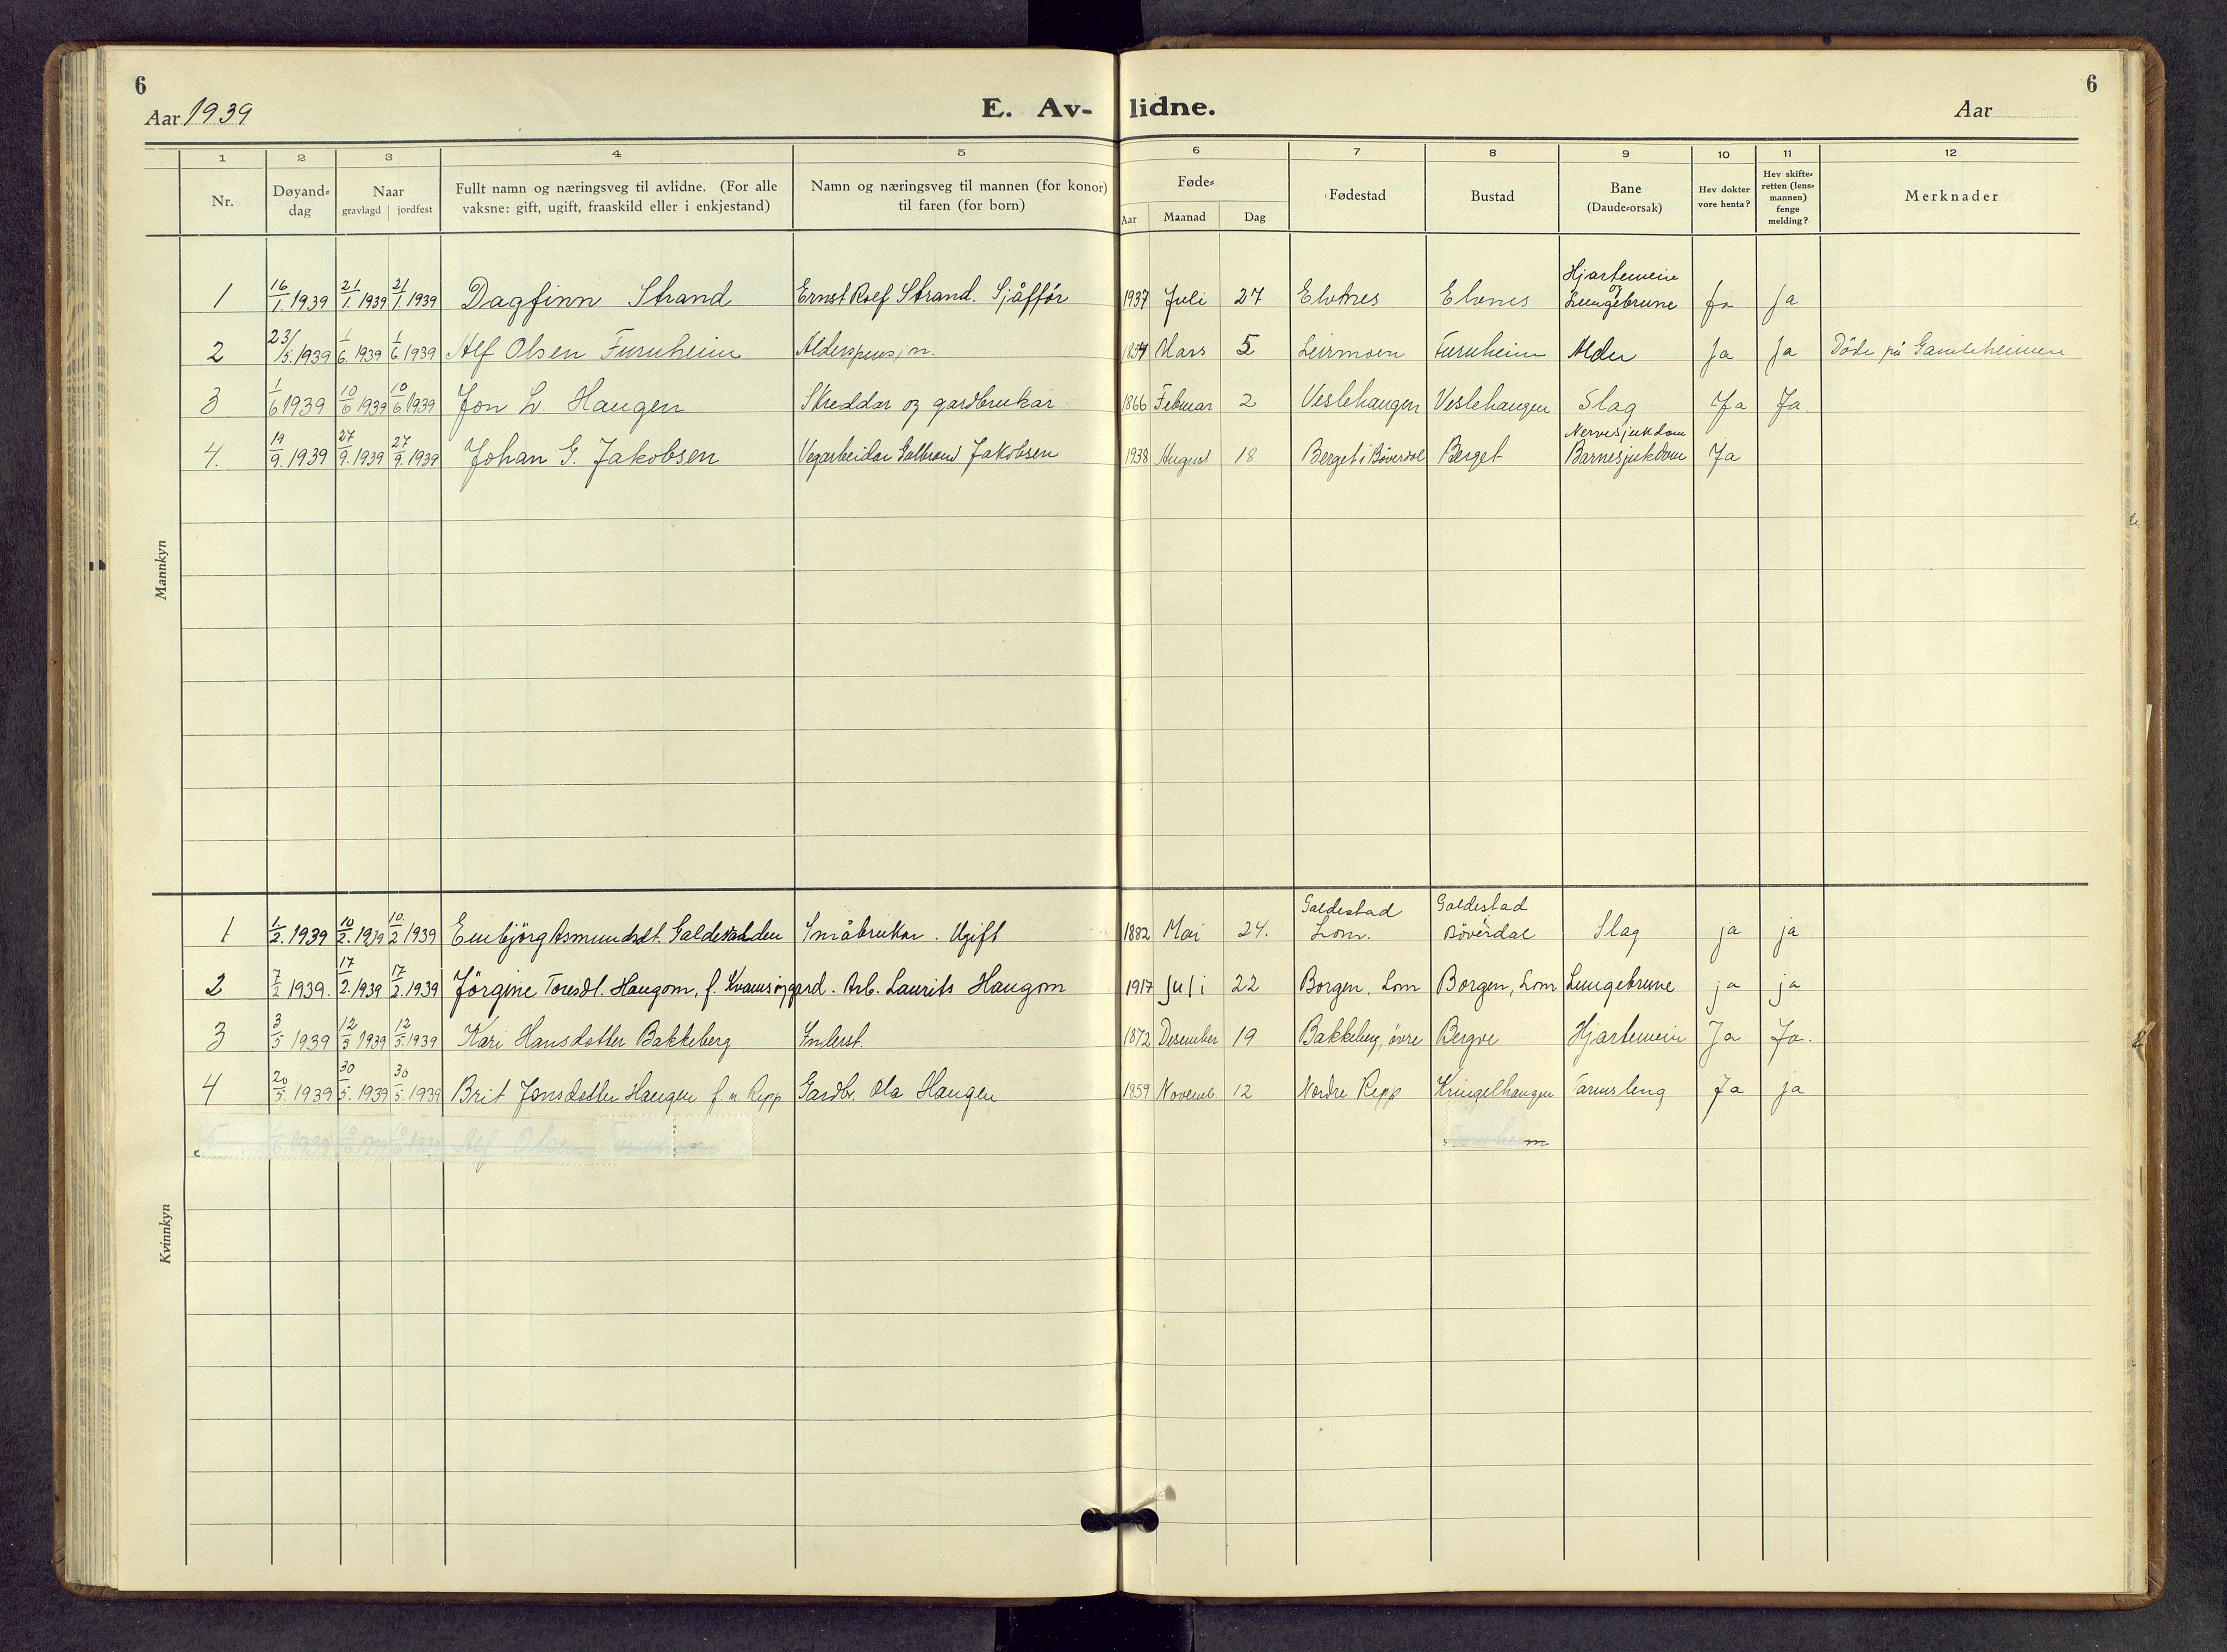 6
Aar 1939
E. Av-lidne.
Aar
6
1 2 3 4 5 6 7 8 9 10 11 12
Nr. Døyand-dag Naar gravlagd jordfest Fullt namn og næringsveg til avlidne. (For alle vaksne: gift, ugift, fraaskild eller i enkjestand) Namn og næringsveg til mannen (for konor) til faren (for born) Føde- Aar Maanad Dag Fødestad Bustad Bane (Daude-orsak) Hev dokter vore henta? Hev skifte-retten (lens-mannen) fenge melding? Merknader
Mannkyn
1 16/1. 1939 21/1. 1939 21/1. 1939 Dagfinn Strand Ernst Rolf Strand. Sjåffør 1937 Juli 27 Elvenes Elvnes Hjartemein og Lungebrune Ja Ja
2 23/5. 1939 1/6. 1939 1/6 1939 Alf Olsen Furuheim Alderspensjn. Mars 5 Leirmoen Furuheim Alder Ja Ja Døde på Gamleheimen
3 1/6 1939 10/6 1939 10/6 1939 Jon L. Haugen Skreddar og gardbrukar 1866 Februar 2 Veslehaugen Veslehaugen Slag Ja Ja.
4. 19/9. 1939 27/9. 1939 27/9. 1939 Johan G. Jakobsen Vegarbeidar Gudbrand Jakobsen 1938 August 18 Berget i Bøverdal Berget Nervesjukdom Barnesjukdom Ja
Kvinnkyn
1 1/2. 1939 10/2. 1939 10./2 1939 Embjörg Asmundsdt. Galdestadden Småbrukar. Ugift 1882 Mai 24. Galdestad Lom. Galdestad i Bøverdal Slag ja ja
2 7/2 1939. 17/2. 1939 17/2. 1939 Jörgine Toresdt. Haugom, f. Kvamsinggard. Arb. Laurits Haugom 1917 juli 22 Borgen, Lom Borgen, Lom Lungebrune ja ja
3 3/5 1939 12/5 1939 12/5. 1939 Kari Hansdotter Bakkeberg 1872 Desember 19 Bakkeberg, øvre Bergve Hjartemein Ja Ja.
4 20/5. 1939 30/5. 1939 30/5. 1939 Brit Jonsdotter Haugen f. n. Repp Gardbr. Ola Haugen 1859 Novemb. 12 Nordre Repp Kringelhaugen Tarmsleng Ja ja
5 1/6 1939 10/6 1939 10/6 1939 Alf Olsen Furuheim Furuheim